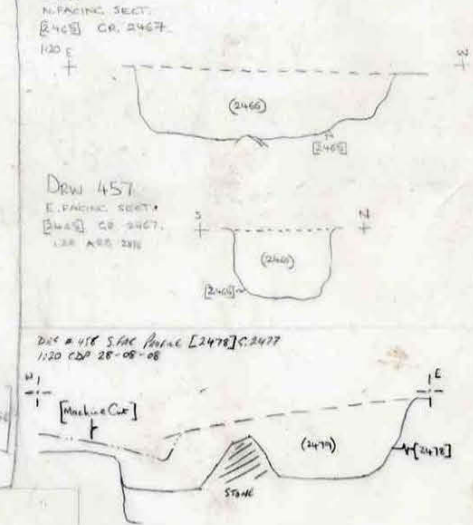 N. FACING SECT.
[2465] GR. 2467.
1:20 E
W
(2466)
[2465]
DRW 457
E. FACING SECT.
[2465] GR 2467.
1:20
S
N
(2466)
[2465]
S. FAC Profile [2478] G. 2477
1:20 CDP 28-08-08
W
E
[Machine Cut]
(2479)
[2478]
STONE